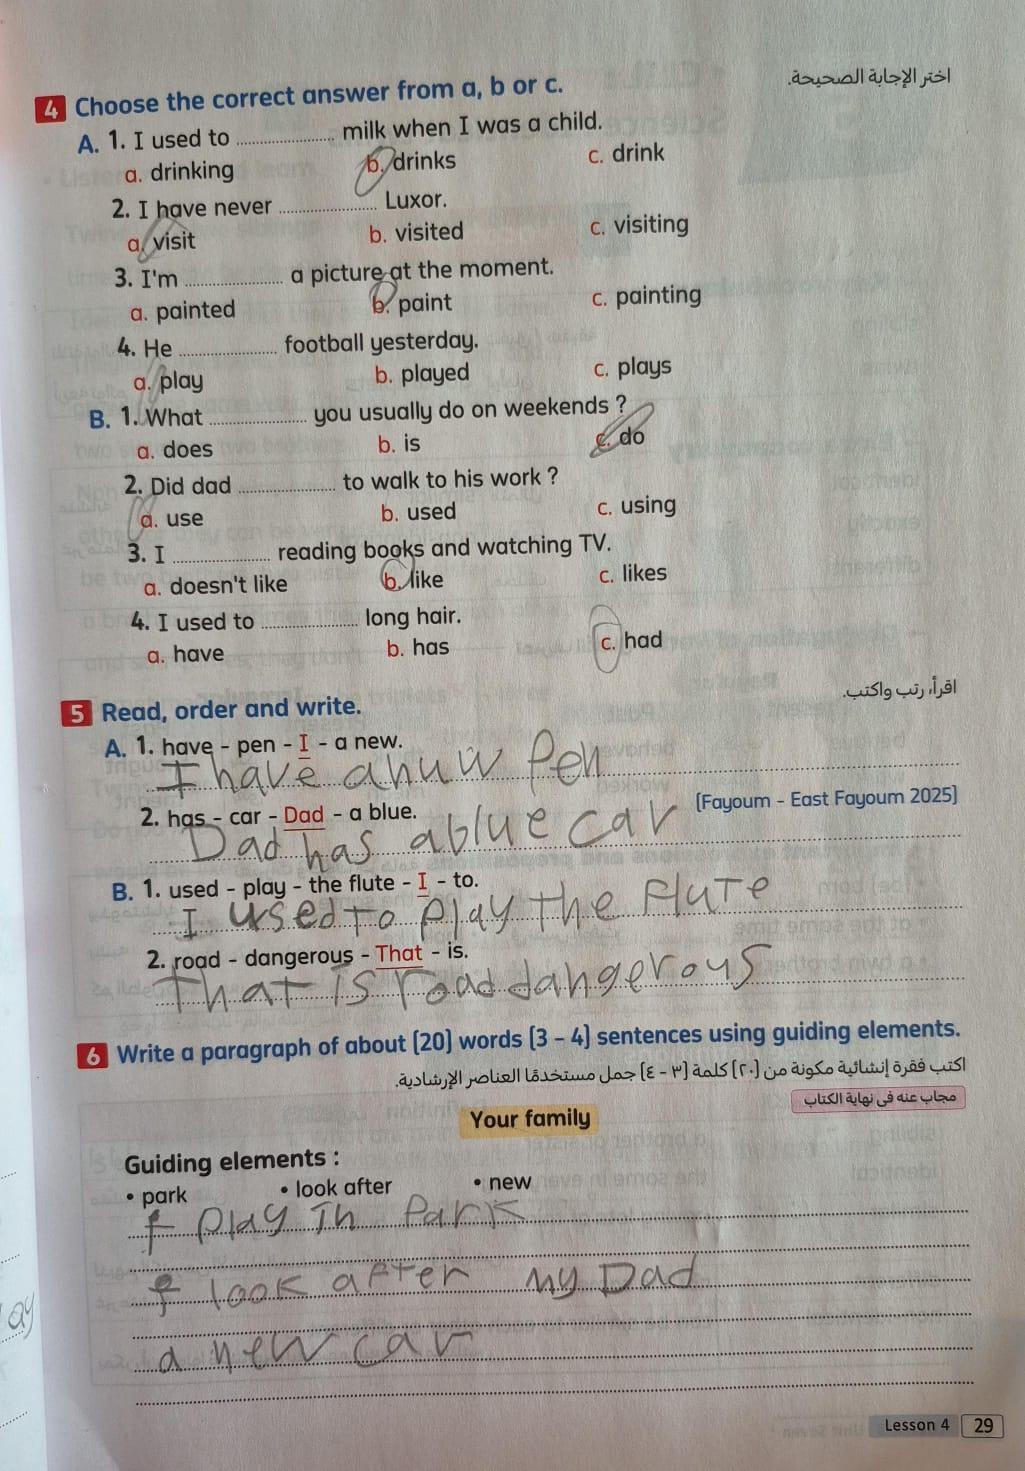 اختر الإجابة الصحيحة.
4 Choose the correct answer from a, b or c.
A. 1. I used to .................... milk when I was a child.
a. drinking b. drinks c. drink
2. I have never .................... Luxor.
a. visit b. visited c. visiting
3. I'm .................... a picture at the moment.
a. painted b. paint c. painting
4. He .................... football yesterday.
a. play b. played c. plays
B. 1. What .................... you usually do on weekends ?
a. does b. is c. do
2. Did dad .................... to walk to his work ?
a. use b. used c. using
3. I .................... reading books and watching TV.
a. doesn't like b. like c. likes
4. I used to .................... long hair.
a. have b. has c. had
اقرأ، رتب واكتب.
5 Read, order and write.
A. 1. have - pen - I - a new.
I have a nuw Pen
2. has - car - Dad - a blue. (Fayoum - East Fayoum 2025)
Dad has a blue car
B. 1. used - play - the flute - I - to.
I used To play the Flute
2. road - dangerous - That - is.
That is road dangerous
6 Write a paragraph of about (20) words (3 - 4) sentences using guiding elements.
اكتب فقرة إنشائية مكونة من (٢٠) كلمة (٣ - ٤) جمل مستخدمًا العناصر الإرشادية.
مجاب عنه فى نهاية الكتاب
Your family
Guiding elements :
• park • look after • new
I play In Park
I look after my Dad
a new car
ay
Lesson 4 29